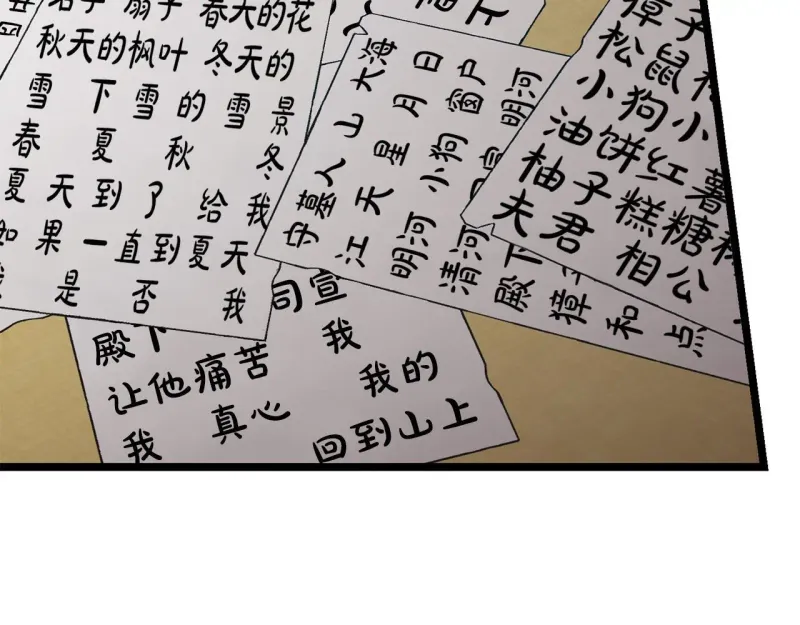 扇子 春天的花
秋天的枫叶 冬天的
雪 下雪的雪景
春 夏 秋 冬
夏天到了 给我
如果一直到夏天
我 是 否 我
守墓人 山 大海
江 天 星 月 日
明河 小狗 窗户
清河 明河
殿下
獐 和 点
獐子 松
松鼠
小狗 小
油饼 红薯
柚子糕 糖
夫君 相公
殿下 司宣
让他痛苦 我
我 真心 我的
回到山上